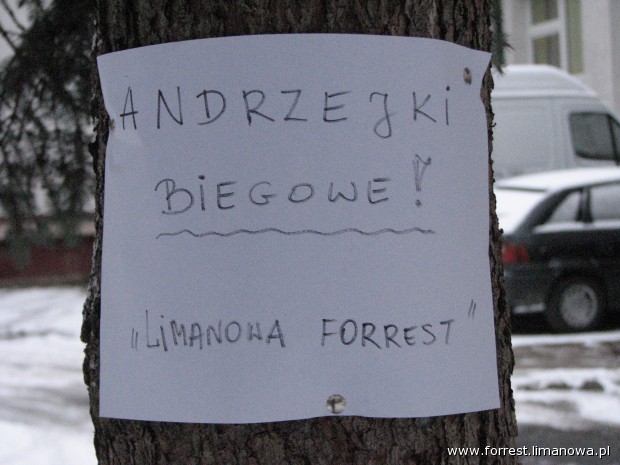 ANDRZEJKI
BIEGOWE!
„LIMANOWA FORREST"
www.forrest.limanowa.pl